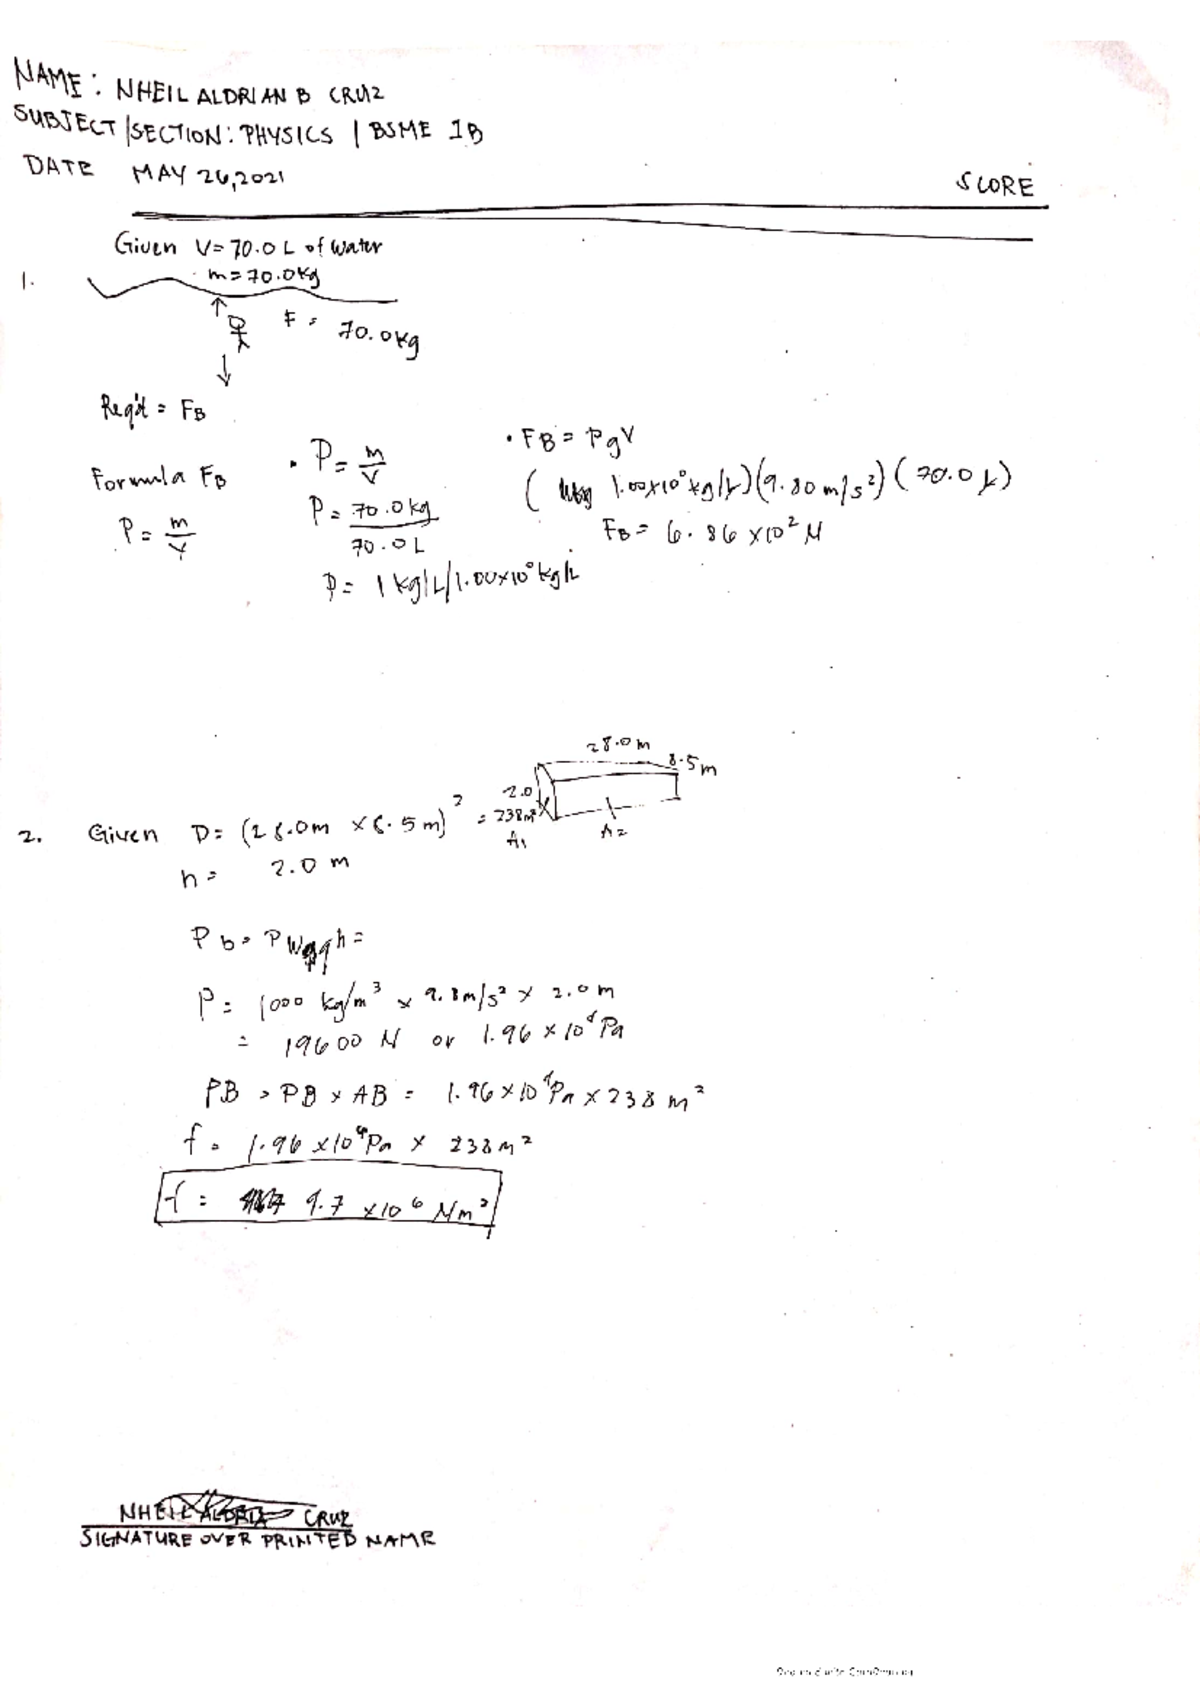 NAME: NHEIL ALDRIAN B CRUZ
SUBJECT/SECTION: PHYSICS | BSME 1B
DATE MAY 26, 2021
SCORE
Given V= 70.0 L of Water
1.
m= 70.0kg
F = 70.0kg
Req'd = FB
Formula FB
P= m/V
• P= m/V
P= 70.0kg/70.0L
P= 1 kg/L/1.00x10⁰kg/L
• FB = PgV
( 1.00x10⁰ kg/L)(9.80 m/s²)(70.0 L)
FB= 6.86 x10² N
28.0m
8.5m
2.0
2. Given D= (28.0m x 8.5m)² = 238m²
A1
A2
h= 2.0 m
Pb = P h=
P= 1000 kg/m³ x 9.8m/s² x 2.0m
= 19600 N or 1.96 x 10⁴ Pa
PB = PB x AB = 1.96x10⁴Pa x 238 m²
f= 1.96 x10⁴Pa x 238m²
f= 4.7 x10⁶ Nm²
NHEIL CRUZ
SIGNATURE OVER PRINTED NAME